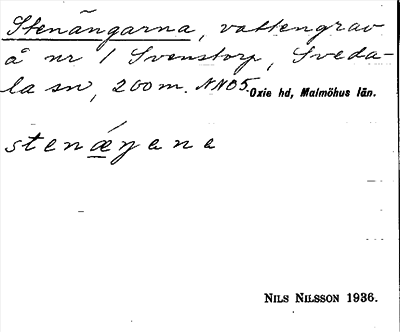 Stenängarna, vattengrav
å nr 1 Svenstorp, Sveda-
la sn, 200 m. NNO5. Oxie hd, Malmöhus län.
stenæŋana
NILS NILSSON 1936.